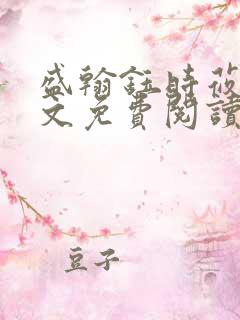 盛翰鈺時莜
文免費閱讀
豆子